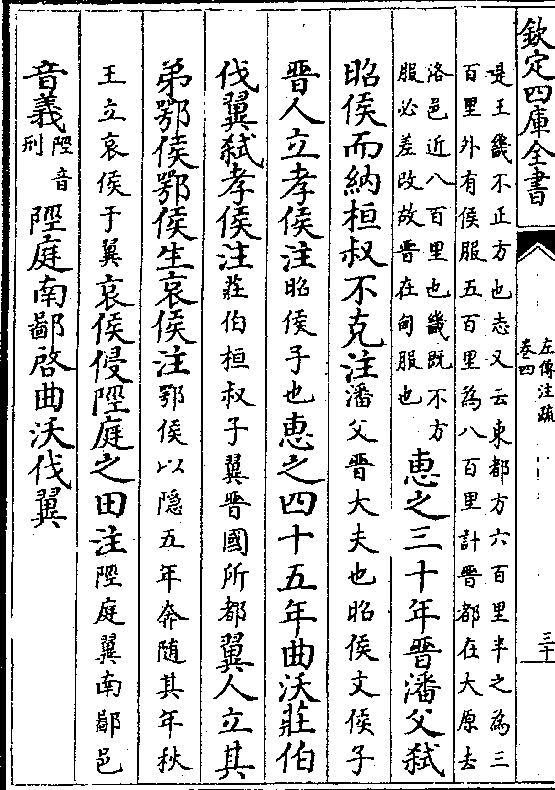 欽定四庫全書
左傳注疏
卷四
三十
是王畿不正方也志又云東都方六百里半之為三
百里外有侯服五百里為八百里計晉都在大原去
洛邑近八百里也畿既不方
服必差改故晉在甸服也
惠之三十年晉潘父弑
昭侯而納桓叔不克注潘父晉大夫也昭侯文侯子
晉人立孝侯注昭侯子也惠之四十五年曲沃莊伯
伐翼弑孝侯注莊伯桓叔子翼晉國所都翼人立其
弟鄂侯鄂侯生哀侯注鄂侯以隱五年奔随其年秋
王立哀侯于翼哀侯侵陘庭之田注陘庭翼南鄙邑
音義陘音
刑
陘庭南鄙啓曲沃伐翼